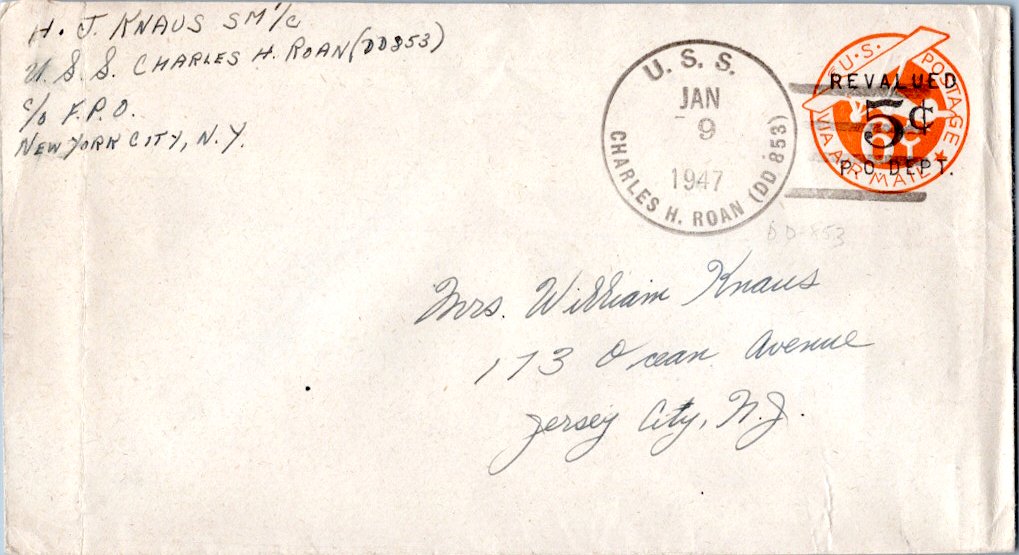 H. J. KNAUS SM 1/C
U. S. S. CHARLES H. ROAN (DD853)
C/O F.P.O.
NEW YORK CITY, N.Y.
U. S. S.
JAN
9
1947
CHARLES H. ROAN (DD 853)
U.S. POSTAGE
REVALUED
5¢
6¢
P.O. DEPT.
VIA AIR MAIL
DD-853
Mrs. William Knaus
173 Ocean Avenue
Jersey City, N.J.